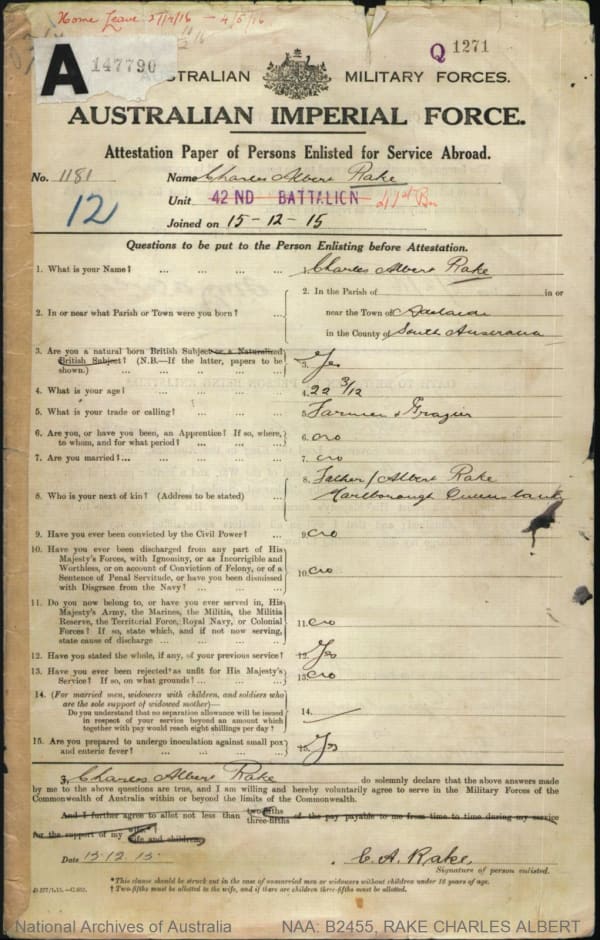 Home Leave 27/12/16 — 4/5/16
Q 1271
A 147790
AUSTRALIAN MILITARY FORCES.
AUSTRALIAN IMPERIAL FORCE.
Attestation Paper of Persons Enlisted for Service Abroad.
No. 1181 Name Charles Albert Rake
12 Unit 42ND BATTALION 41st Bn
Joined on 15-12-15
Questions to be put to the Person Enlisting before Attestation.
1. What is your Name? ... ... ... ... 1. Charles Albert Rake
2. In or near what Parish or Town were you born? ...
2. In the Parish of in or
near the Town of Adelaide
in the County of South Australia
3. Are you a natural born British Subject or a Naturalized
British Subject? (N.B.—If the latter, papers to be
shown.) ... ... ... ... 3. Yes
4. What is your age? ... ... ... ... 4. 22 3/12
5. What is your trade or calling? ... ... ... 5. Farmer & Grazier
6. Are you, or have you been, an Apprentice? If so, where,
to whom, and for what period? ... ... ... 6. no
7. Are you married?... ... ... ... ... 7. no
8. Who is your next of kin? (Address to be stated) ...
8. Father / Albert Rake
Marlborough Queensland
9. Have you ever been convicted by the Civil Power? ... 9. no
10. Have you ever been discharged from any part of His
Majesty's Forces, with Ignominy, or as Incorrigible and
Worthless, or on account of Conviction of Felony, or of a
Sentence of Penal Servitude, or have you been dismissed
with Disgrace from the Navy? ... ... ... 10. no
11. Do you now belong to, or have you ever served in, His
Majesty's Army, the Marines, the Militia, the Militia
Reserve, the Territorial Force, Royal Navy, or Colonial
Forces? If so, state which, and if not now serving,
state cause of discharge ... ... ... ... 11. no
12. Have you stated the whole, if any, of your previous service? 12. Yes
13. Have you ever been rejected as unfit for His Majesty's
Service? If so, on what grounds? ... ... ... 13. no
14. (For married men, widowers with children, and soldiers who
are the sole support of widowed mother)—
Do you understand that no separation allowance will be issued
in respect of your service beyond an amount which
together with pay would reach eight shillings per day?
14.
15. Are you prepared to undergo inoculation against small pox
and enteric fever? ... ... ... ... 15. Yes
I, Charles Albert Rake do solemnly declare that the above answers made
by me to the above questions are true, and I am willing and hereby voluntarily agree to serve in the Military Forces of the
Commonwealth of Australia within or beyond the limits of the Commonwealth.
And I further agree to allot not less than two-fifths three-fifths of the pay payable to me from time to time during my service
for the support of my wife.* † wife and children.
Date 15.12.15. C. A. Rake
Signature of person enlisted.
*This clause should be struck out in the case of unmarried men or widowers without children under 16 years of age.
† Two-fifths must be allotted to the wife, and if there are children three-fifths must be allotted.
National Archives of Australia NAA: B2455, RAKE CHARLES ALBERT